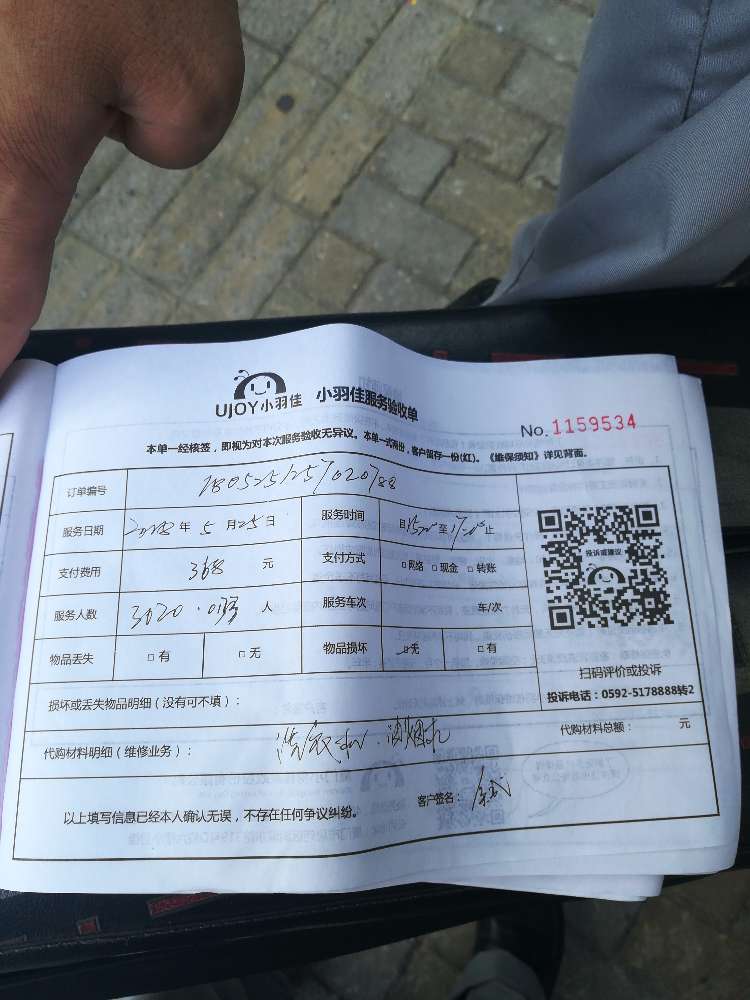 UJOY小羽佳 小羽佳服务验收单
No. 1159534
本单一经核签，即视为对本次服务验收无异议。本单一式两份，客户留存一份(红)。《维保须知》详见背面。
订单编号
服务日期 2018年5月25日 服务时间 自15:00至17:00止
支付费用 368 元 支付方式 □网络 □现金 □转账
服务人数 人 服务车次 车/次
物品丢失 □有 □无 物品损坏 □无 □有
投诉或建议
扫码评价或投诉
投诉电话：0592-5178888转2
损坏或丢失物品明细（没有可不填）：
代购材料明细（维修业务）： 洗衣机．油烟机 代购材料总额： 元
以上填写信息已经本人确认无误，不存在任何争议纠纷。 客户签名：